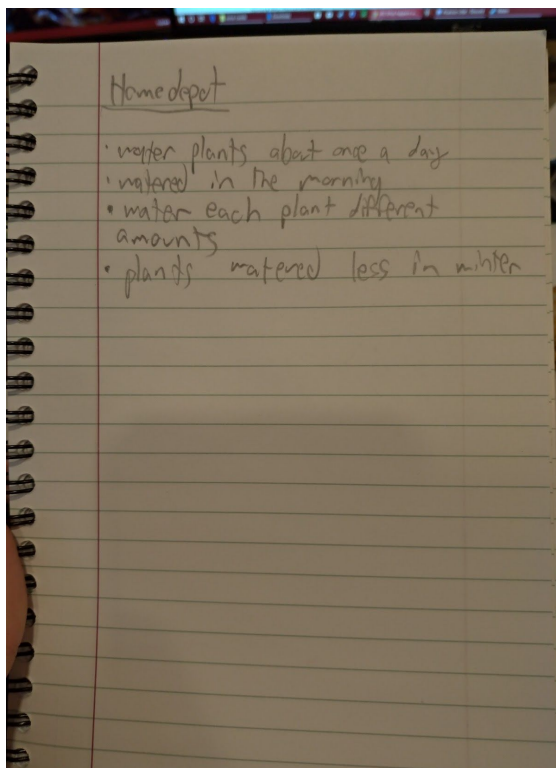 Home depot
· water plants about once a day
· watered in the morning
• water each plant different
amounts
• plants watered less in winter